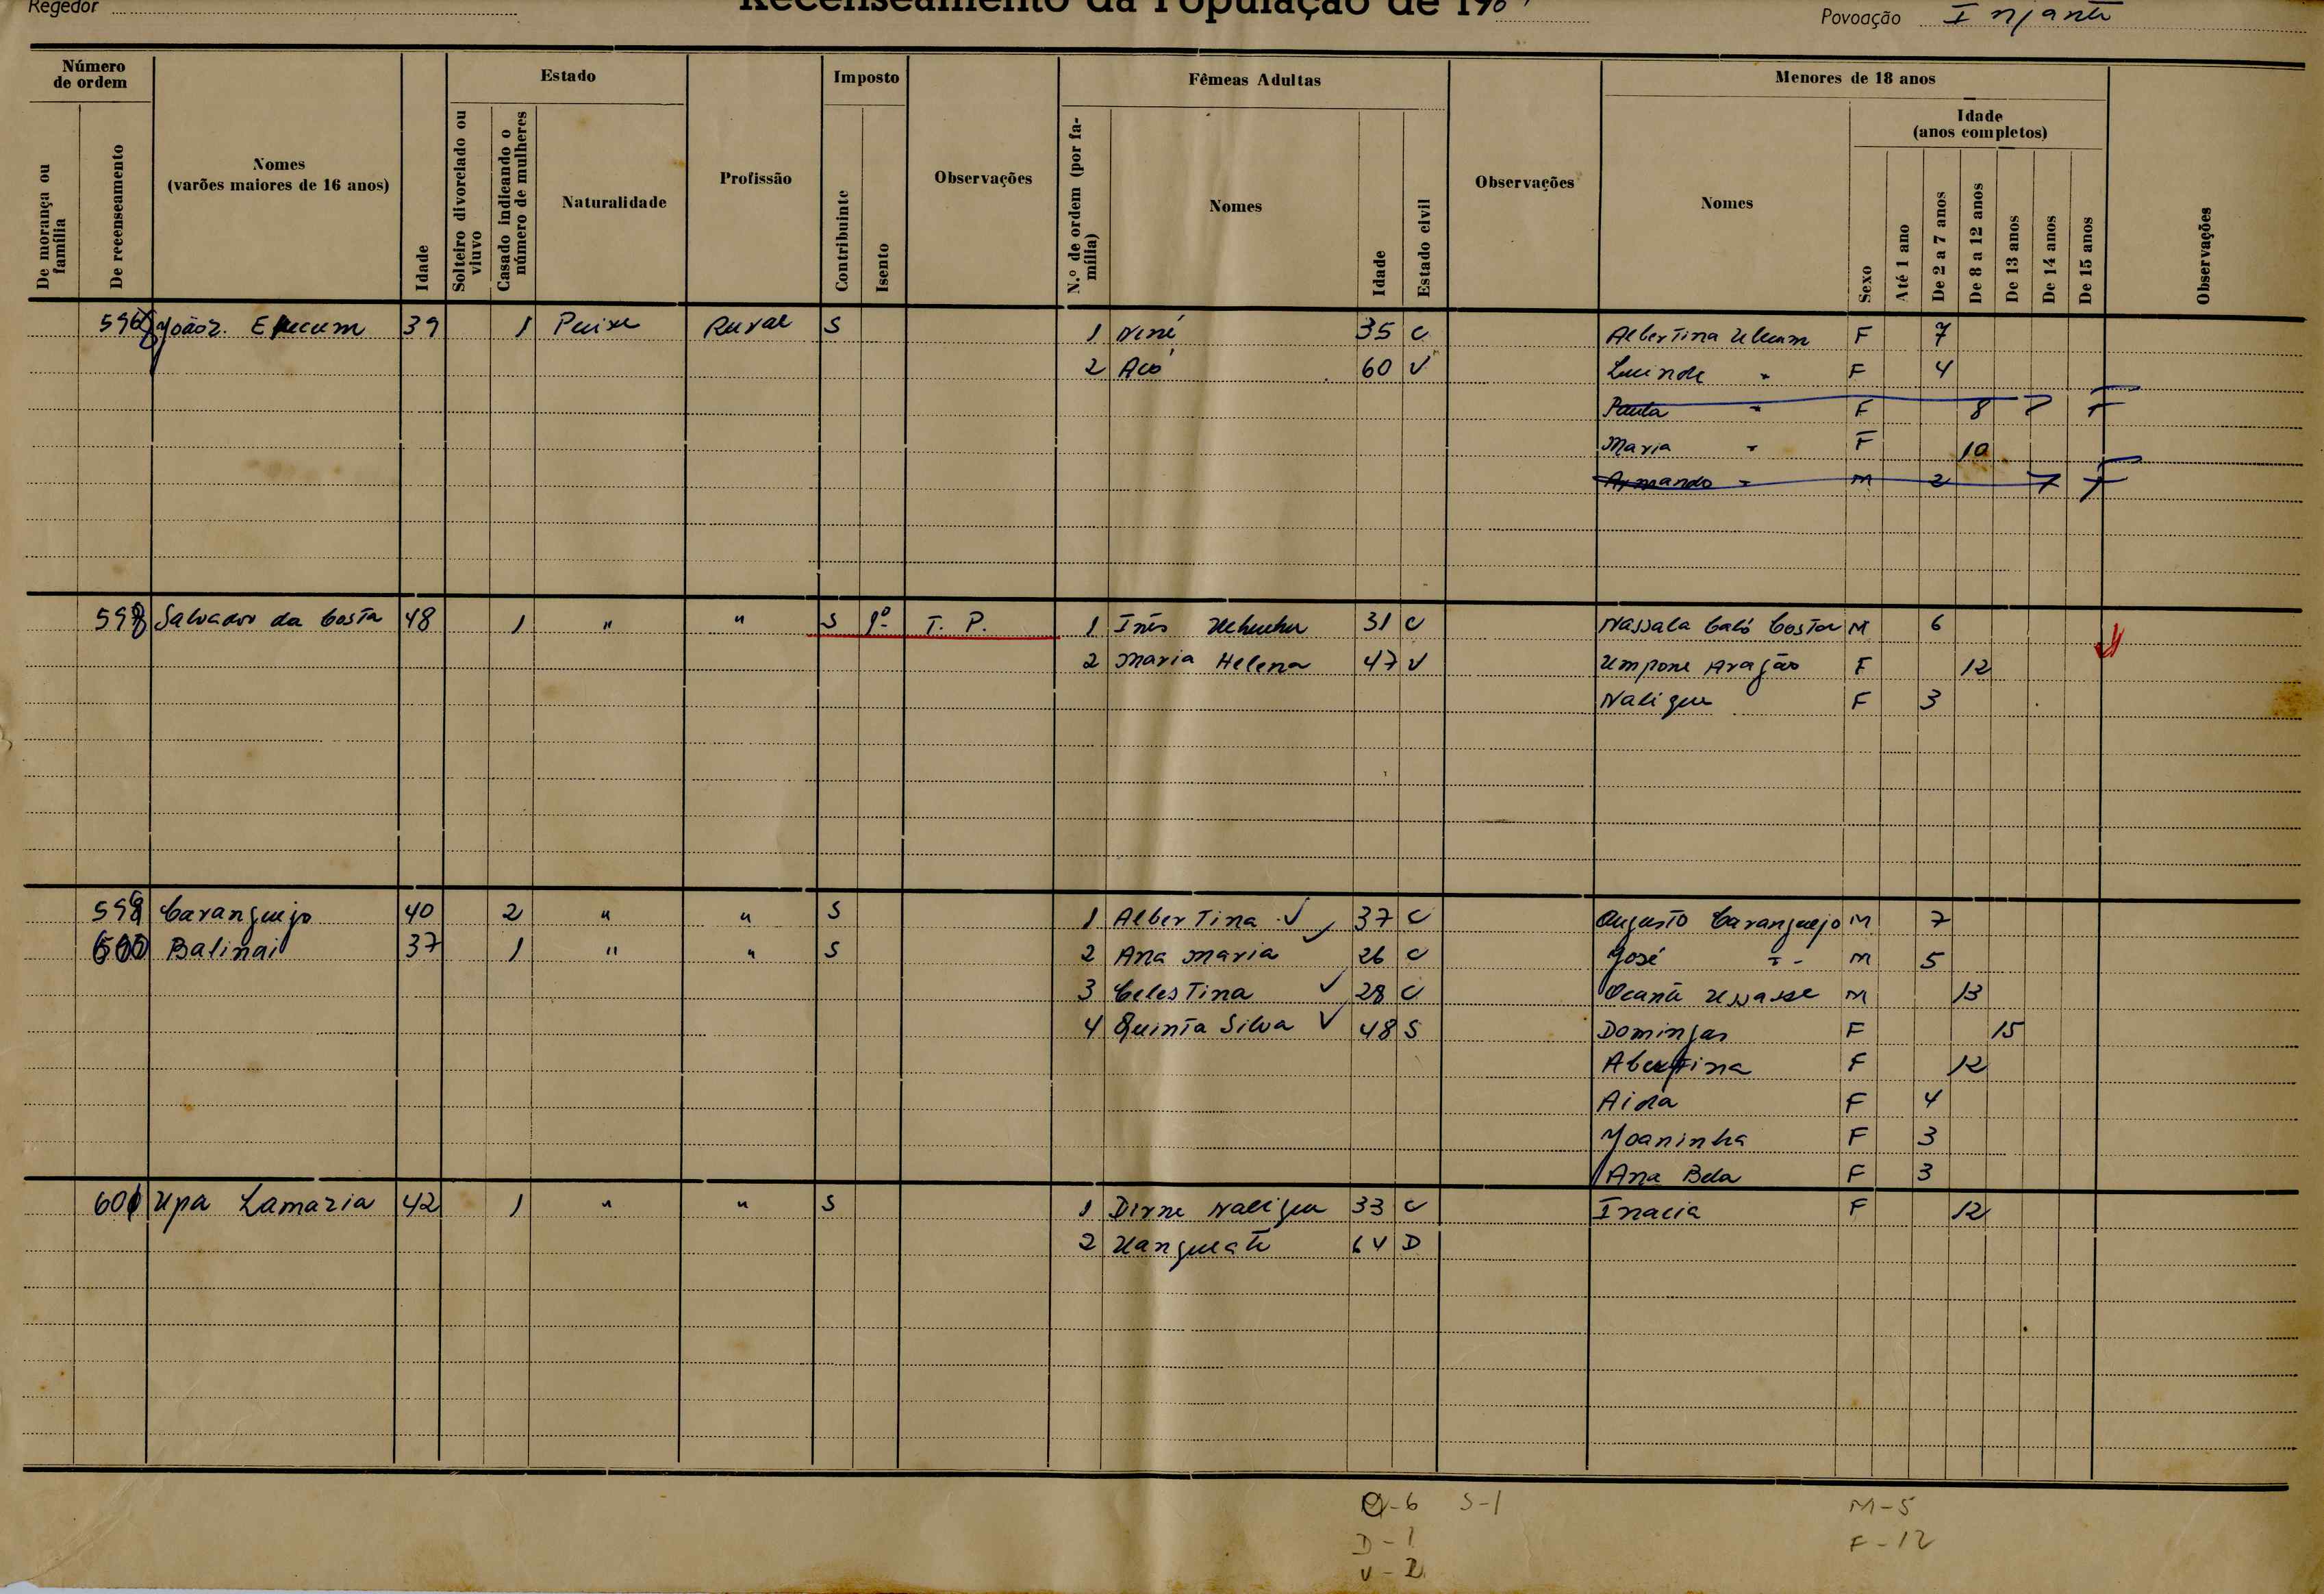 Regedor
Recenseamento da População de 196
Povoação Injante
Número de ordem
Estado
Imposto
Fêmeas Adultas
Menores de 18 anos
De morança ou família
De recenseamento
Nomes
(varões maiores de 16 anos)
Idade
Solteiro divorciado ou viuvo
Casado indicando o número de mulheres
Naturalidade
Profissão
Contribuinte
Isento
Observações
N.º de ordem (por família)
Nomes
Idade
Estado civil
Observações
Nomes
Sexo
Idade
(anos completos)
Até 1 ano
De 2 a 7 anos
De 8 a 12 anos
De 13 anos
De 14 anos
De 15 anos
Observações
João 39 1 Rural S 1 Nené 35 C Albertina F 7
2 Acó 60 V Lucinde " F 4
Paula " F 8
Maria " F 10
Armando " M 2
Salvador da Costa 48 1 " " S 1º T. P. 1 Inês 31 C Nassala Caló Costa M 6
2 Maria Helena 47 V Umpone Aragão F 12
Naligue F 3
599 Caranguejo 40 2 " " S 1 Albertina 37 C Augusto Caranguejo M 7
600 Balinai 37 1 " " S 2 Ana Maria 26 C José " M 5
3 Celestina 28 C M 13
4 Quinta Silva 48 S Domingas F 15
Abertina F 12
Aida F 4
Joaninha F 3
Ana Bela F 3
601 Upa Lamaria 42 1 " " S 1 Dirne Naligue 33 C Inacia F 12
2 64 D
C-6 S-1 M-5
D-1 F-12
V-2